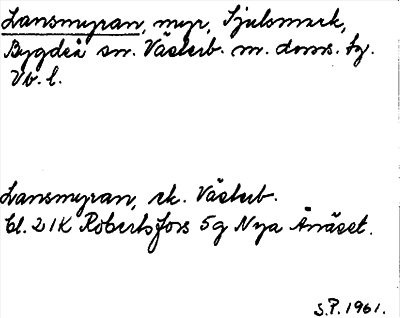 Lansmyran, myr, Sjulsmark,
Bygdeå sn. Västerb. m. doms. tg.
Vb. l.
Lansmyran, ek. Västerb.
bl. 21K Robertsfors 5g Nya Ånäset.
S.P. 1961.